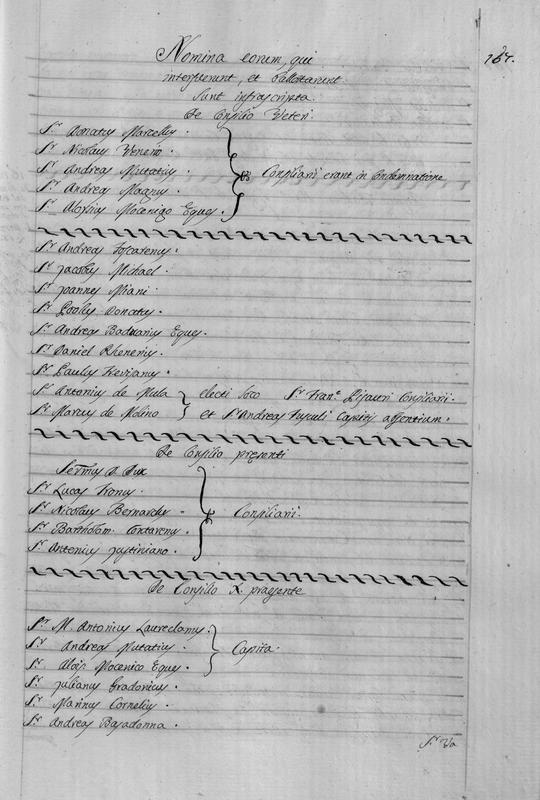 167.
Nomina eorum, qui
interfuerunt, et ballotarunt
sunt infrascripta.
De Consilio Veteri
Sr. Donatus Marcellus.
Sr. Nicolaus Venerio.
Sr. Andreas Mutatius.
Sr. Andrea Magnus.
Sr. Aloysius Mocenigo Eques.
Consiliarii erant in condemnatione
Sr. Andreas Foscarenus.
Sr. Jacobus Michael.
Sr. Joannes Miani.
Sr. Donatus.
Sr. Andreas Baduarius Eques.
Sr. Daniel Rhenerius.
Sr. Paulus Trevisanus.
Sr. Antonius de Mula
Sr. Marcus de Molino
electi loco Sr. Franc. Pisauri Consiliarii.
et Sr. Andreas Capitis absentium.
De Consilio presenti
Sermus D. Dux
Sr. Lucas Tronus.
Sr. Nicolaus Bernardus.
Sr. Bartholom. Contarenus.
Sr. Antonius Justiniano.
Consiliarii.
De Consilio X. praesente
Sr. M. Antonius Lauredanus.
Sr. Andreas Mutatius.
Sr. Alois Mocenico Eques.
Capita.
Sr. Julianus Gradonicus.
Sr. Marinus Cornelius.
Sr. Andreas Basadonna.
Sr. Va